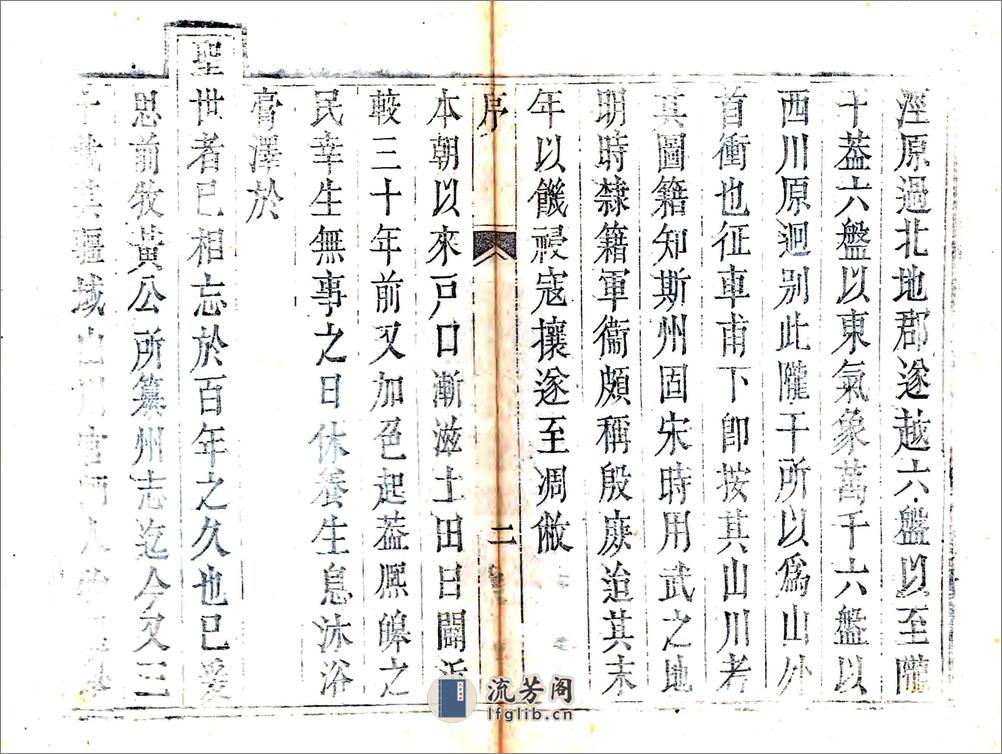 涇原過北地郡遂越六盤以至隴
干葢六盤以東氣象萬千六盤以
西川原迴别此隴干所以爲山外
首衝也征車甫下卽按其山川考
其圖籍知斯州固宋時用武之地
明時隸籍軍衞頗稱殷庶迨其末
年以饑祲寇攘遂至凋敝
序
二
本朝以來戸口漸滋土田日闢
較三十年前又加邑起葢熈皞之
民幸生無事之日休養生息沐浴
膏澤於
聖世者已相忘於百年之久也已爰
思前牧黃公所纂州志迄今又三
十
其疆域山
流芳阁
lfglib.cn